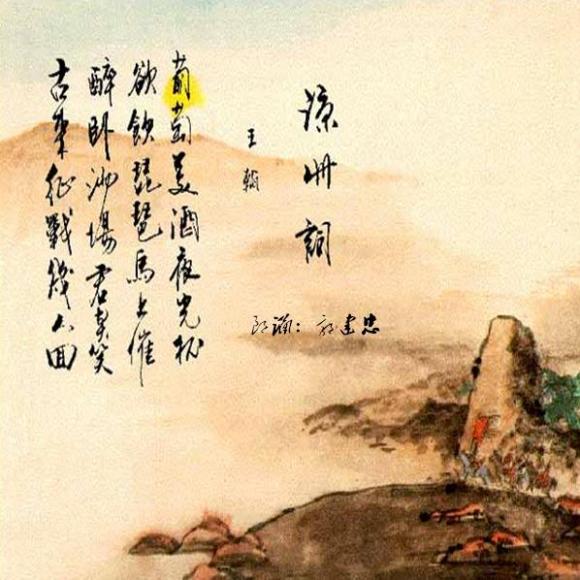 涼州詞
王翰
葡萄美酒夜光杯
欲飲琵琶馬上催
醉卧沙場君莫笑
古來征戰幾人回
朗诵：郭建忠